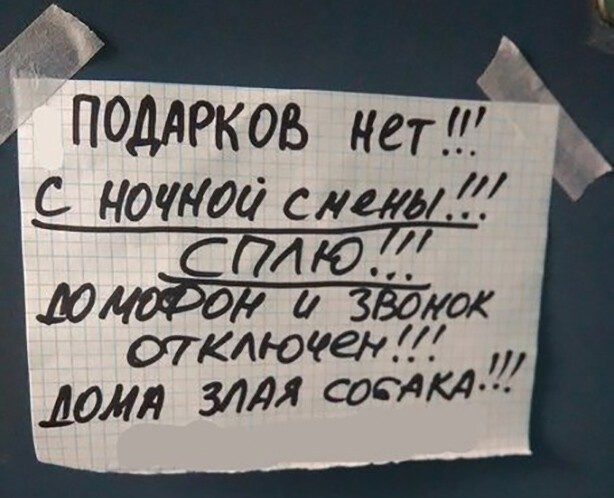 ПОДАРКОВ нет!!!
С НОЧНОЙ смены!!!
СПЛЮ!!!
ДОМОФОН и ЗВОНОК
ОТКЛЮЧЕН!!!
ДОМА ЗЛАЯ СОБАКА!!!